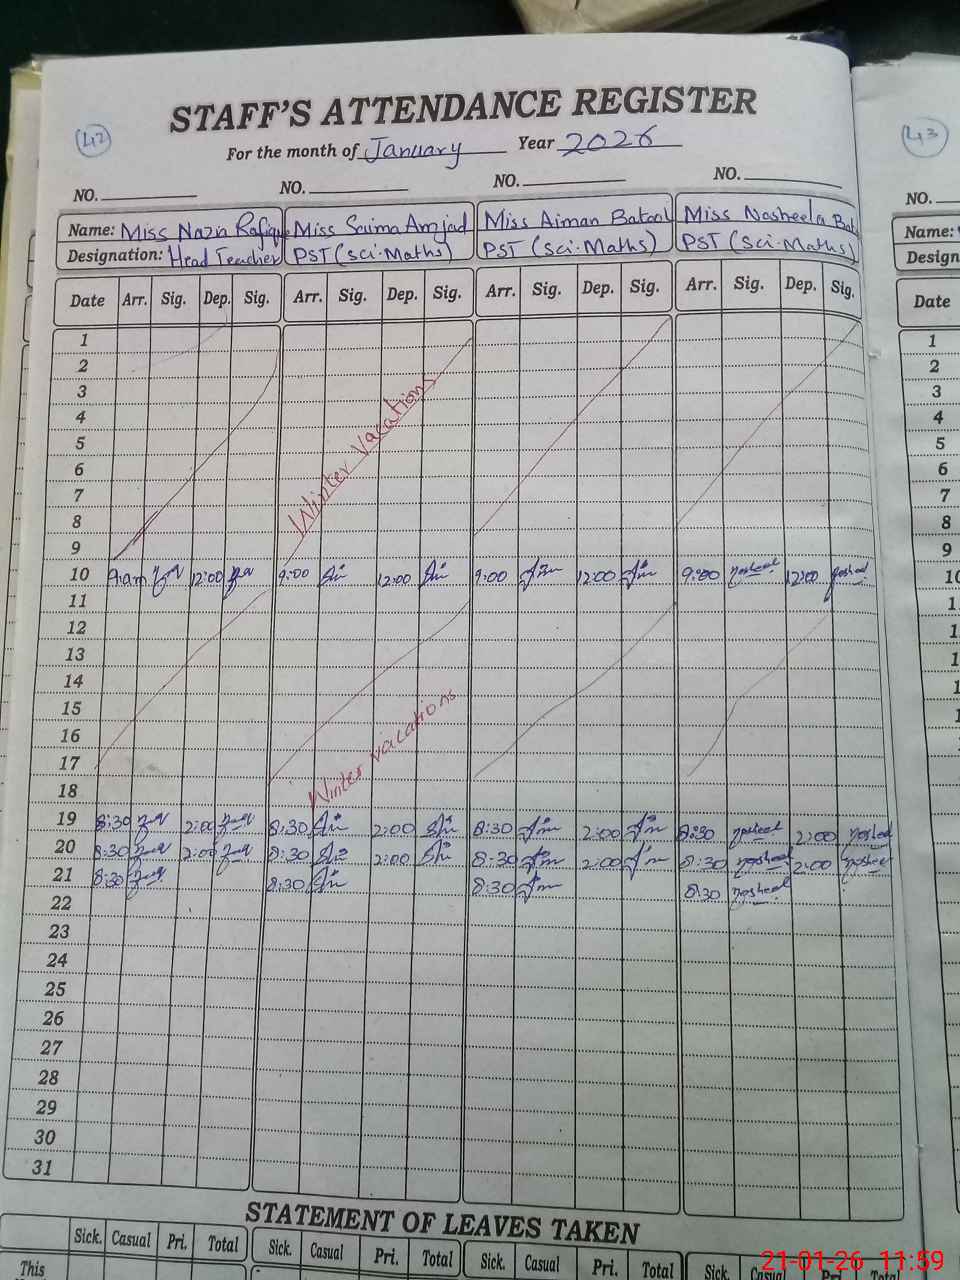 STAFF'S ATTENDANCE REGISTER
42
43
For the month of January Year 2026
NO. NO. NO. NO. NO.
Name: Miss Nazia Rafique Miss Saima Amjad Miss Aiman Batool Miss Nasheela Name:
Designation: Head Teacher PST (Sci-Maths) PST (Sci-Maths) PST (Sci-Maths) Design
Date Arr. Sig. Dep. Sig. Arr. Sig. Dep. Sig. Arr. Sig. Dep. Sig. Arr. Sig. Dep. Sig. Date
1 1
2 2
3 3
4 4
5 5
6 6
7 7
8 8
Winter Vacations
9 9
10 9:am 12:00 9:00 12:00 9:00 12:00 9:00 12:00 10
11
12
13
14
15
16
17
18
Winter vacations
19 8:30 2:00 8:30 2:00 8:30 2:00 8:30 2:00
20 8:30 2:00 8:30 2:00 8:30 2:00 8:30 2:00
21 8:30 8:30 8:30 8:30
22
23
24
25
26
27
28
29
30
31
STATEMENT OF LEAVES TAKEN
Sick. Casual Pri. Total Sick. Casual Pri. Total Sick. Casual Pri. Total Sick. Casual Pri. Total
This
21-01-26 11:59